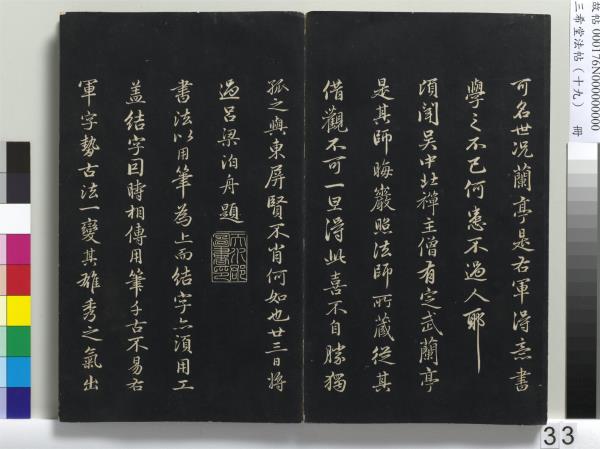 可名世況蘭亭是右軍得意書
學之不已何患不過人耶
頃聞吳中北禪主僧有定武蘭亭
是其師晦巖照法師所藏從其
借觀不可一旦得此喜不自勝獨
孤之與東屏賢不肖何如也廿三日將
過呂梁泊舟題
書法以用筆為上而結字亦須用工
蓋結字因時相傳用筆千古不易右
軍字勢古法一變其雄秀之氣出
故帖 000176N000000000
三希堂法帖(十九) 冊
33